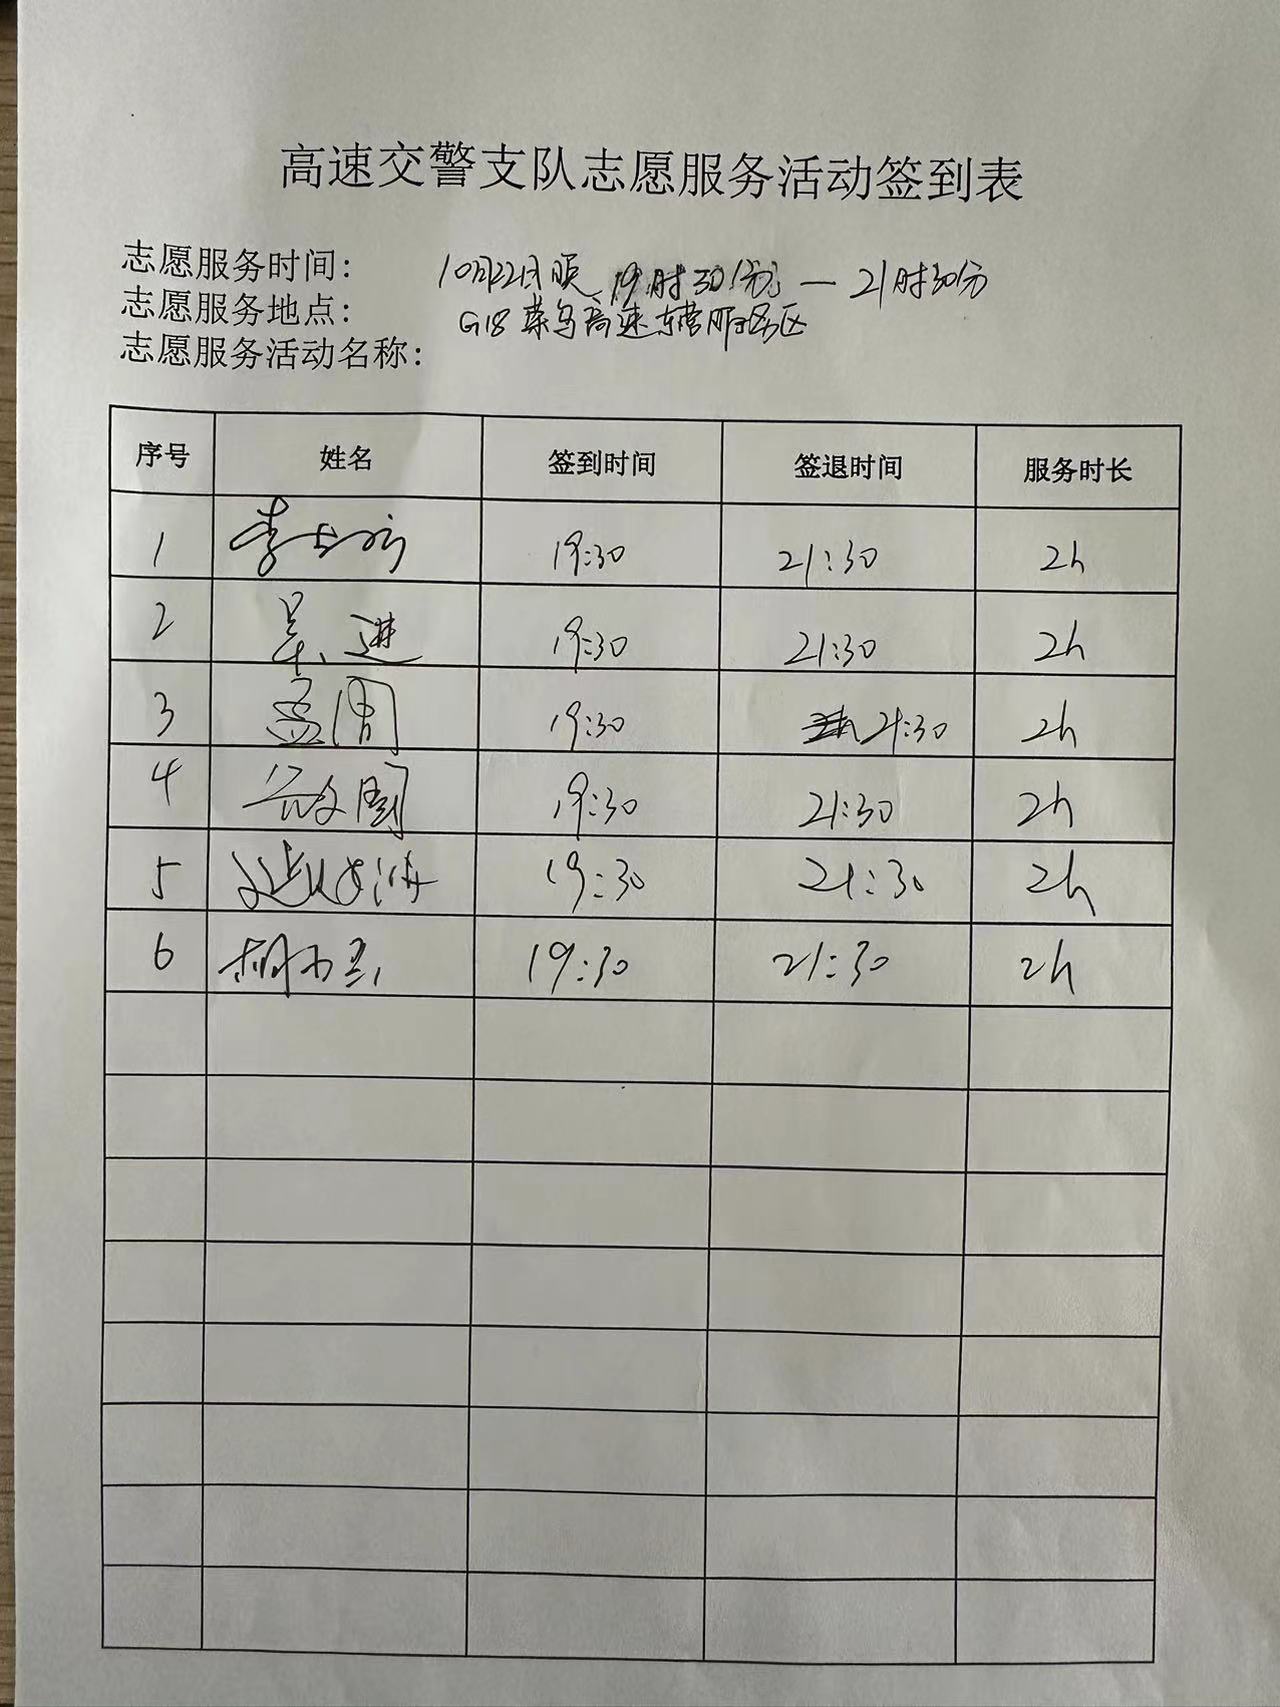 高速交警支队志愿服务活动签到表
志愿服务时间: 10月22日晚 19时30分 — 21时30分
志愿服务地点: G18 荣乌高速东营服务区
志愿服务活动名称:
序号 姓名 签到时间 签退时间 服务时长
1 19:30 21:30 2h
2 吴进 19:30 21:30 2h
3 孟周 19:30 21:30 2h
4 19:30 21:30 2h
5 19:30 21:30 2h
6 19:30 21:30 2h